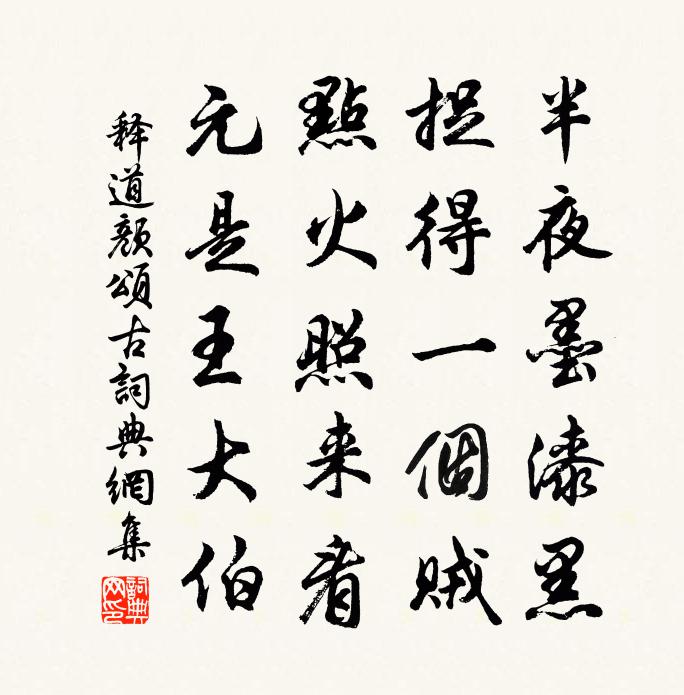 半夜墨漆黑
捉得一個賊
點火照来看
元是王大伯
释道颜頌古詞典網集
詞典網印